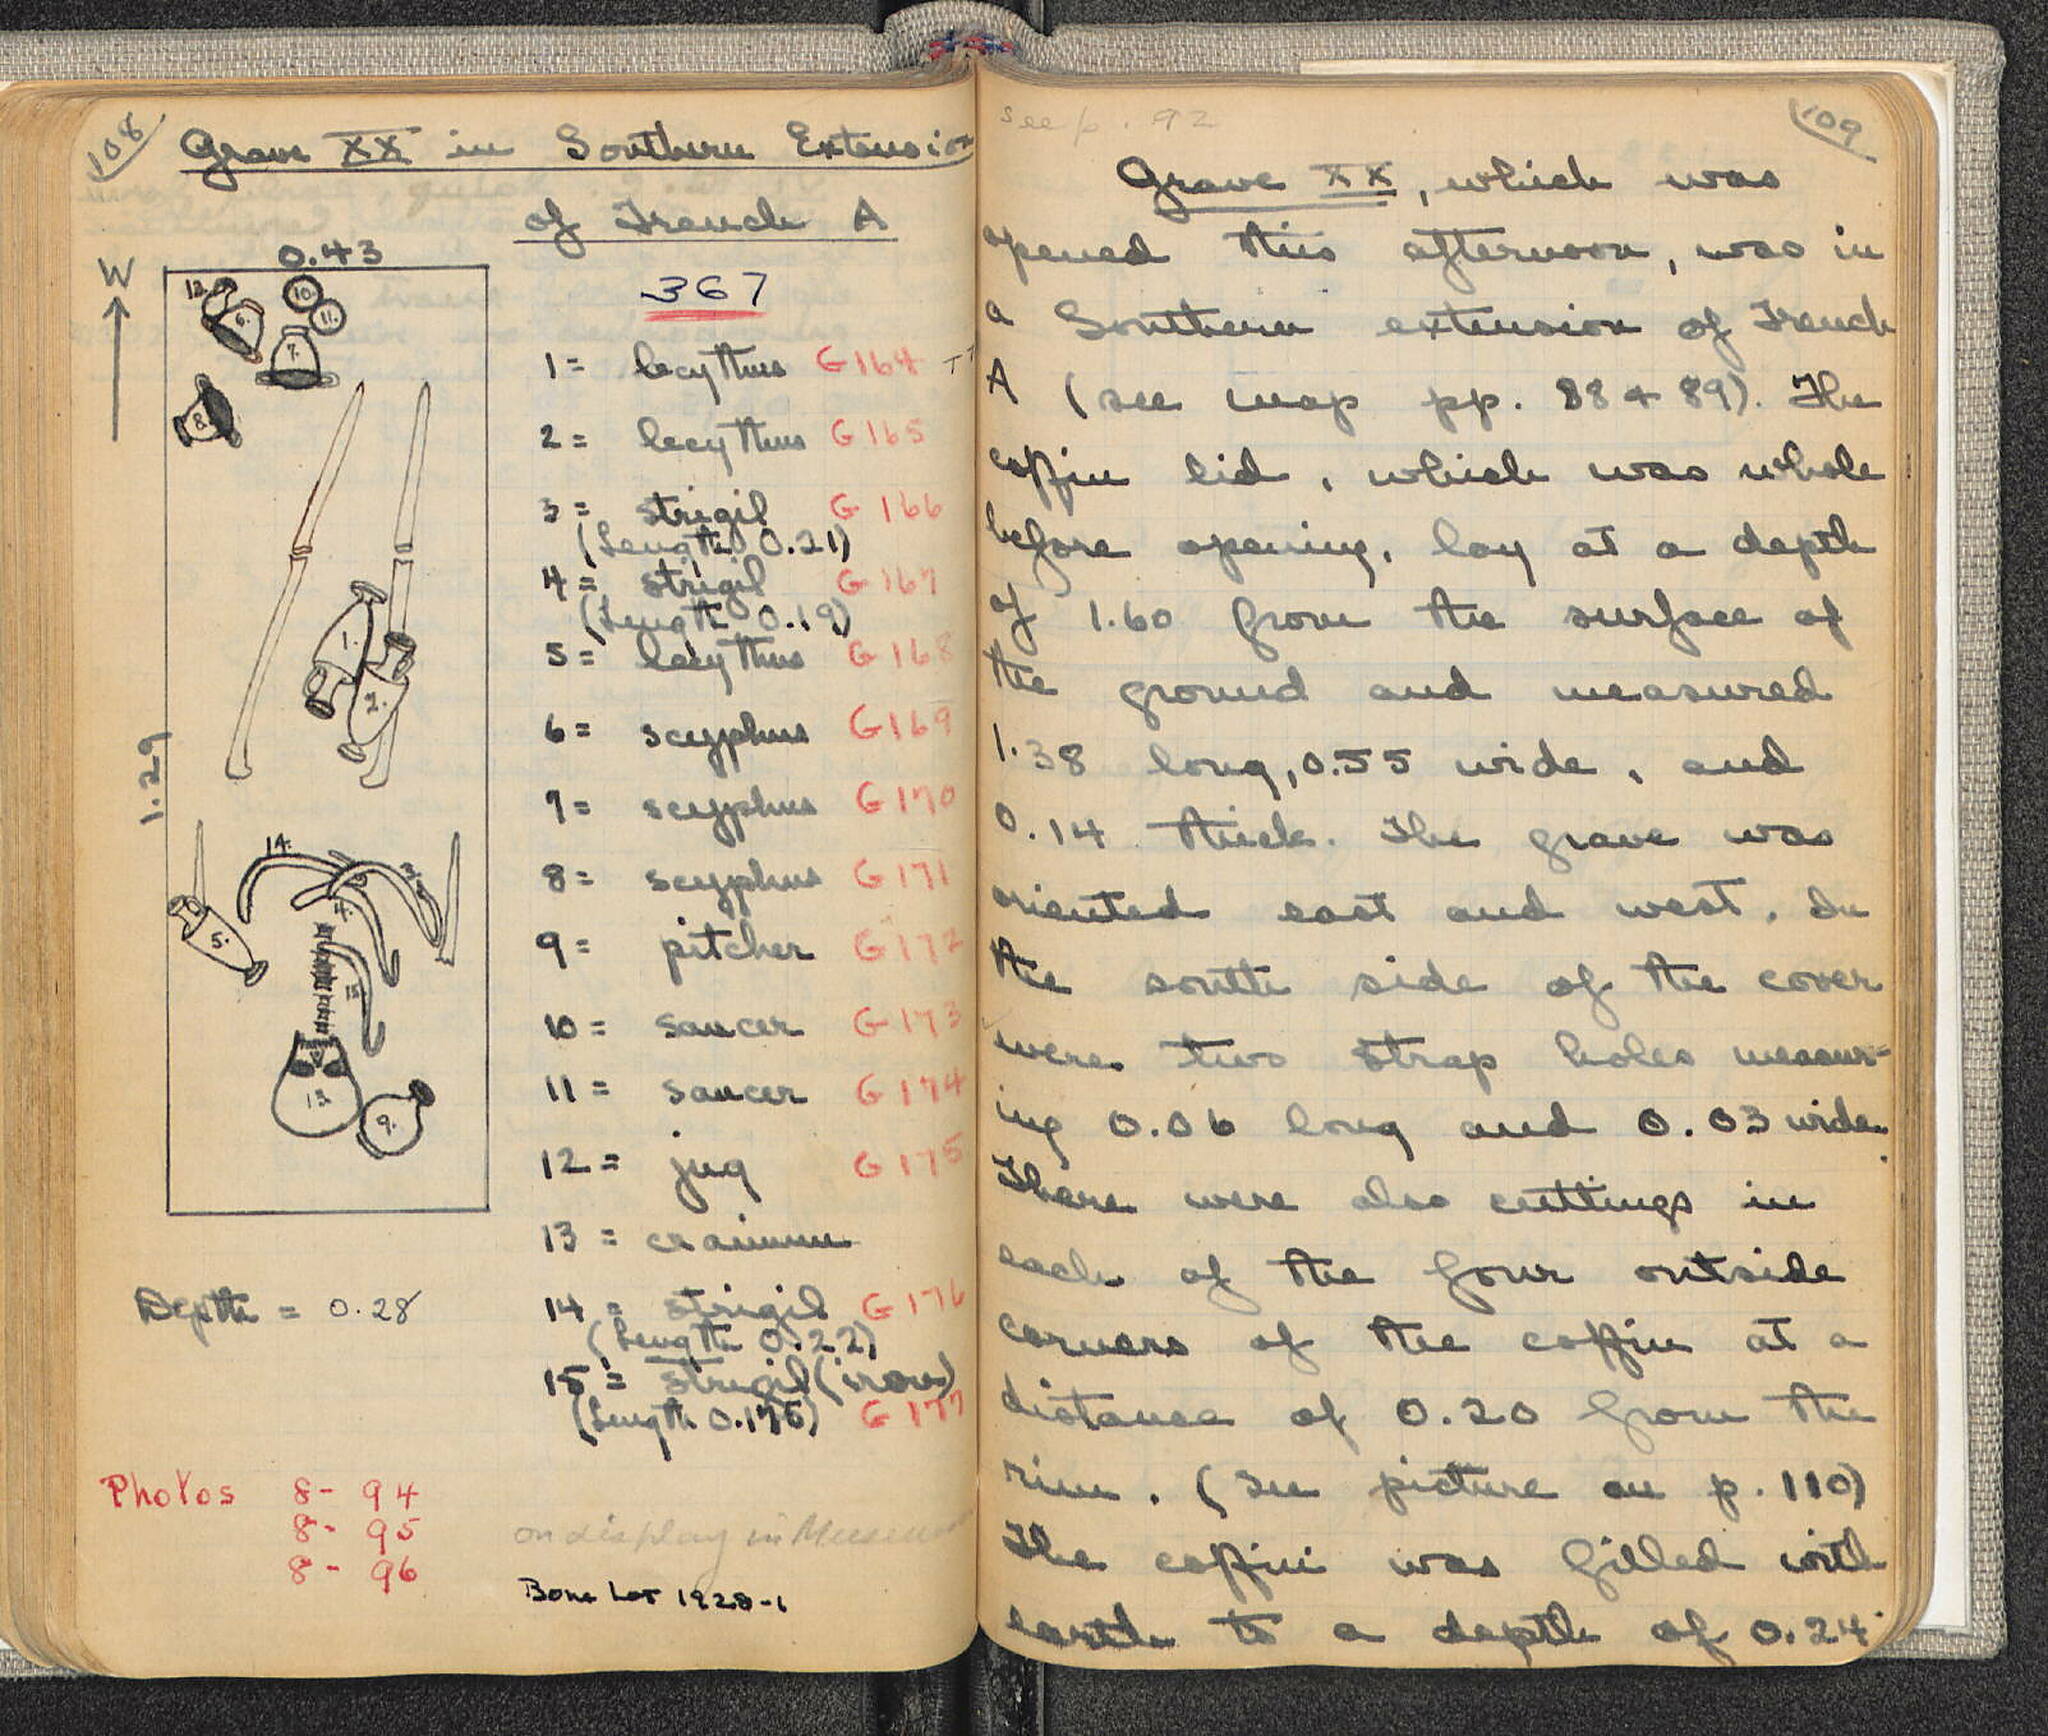 108
Grave XX in Southern Extension
of Trench A
W
0.43
367
1.29
12.
6.
10.
11.
7.
8.
1.
2.
14.
3.
4.
5.
15
13.
9.
1 = lecythus G 164
2 = lecythus G 165
3 = strigil G 166
(Length 0.21)
4 = strigil G 167
(Length 0.19)
5 = lecythus G 168
6 = scyphus G 169
7 = scyphus G 170
8 = scyphus G 171
9 = pitcher G 172
10 = saucer G 173
11 = saucer G 174
12 = jug G 175
13 = cranium
14 = strigil G 176
(Length 0.22)
15 = strigil (iron)
(Length 0.175) G 177
Depth = 0.28
Photos 8 - 94
8 - 95
8 - 96
on display in Museum
Bone Lot 1928-1
see p. 92
109
Grave XX, which was
opened this afternoon, was in
a Southern extension of Trench
A (see map pp. 88 + 89). The
coffin lid, which was whole
before opening, lay at a depth
of 1.60 from the surface of
the ground and measured
1.38 long, 0.55 wide, and
0.14 thick. The grave was
oriented east and west. In
the south side of the cover
were two strap holes measur-
ing 0.06 long and 0.03 wide.
There were also cuttings in
each of the four outside
corners of the coffin at a
distance of 0.20 from the
rim. (See picture on p. 110)
The coffin was filled with
earth to a depth of 0.24.